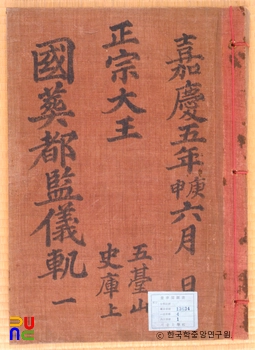 嘉慶五年庚申六月 日
正宗大王
國葬都監儀軌 一
五臺山
史庫上
13524
1
한국학중앙연구원